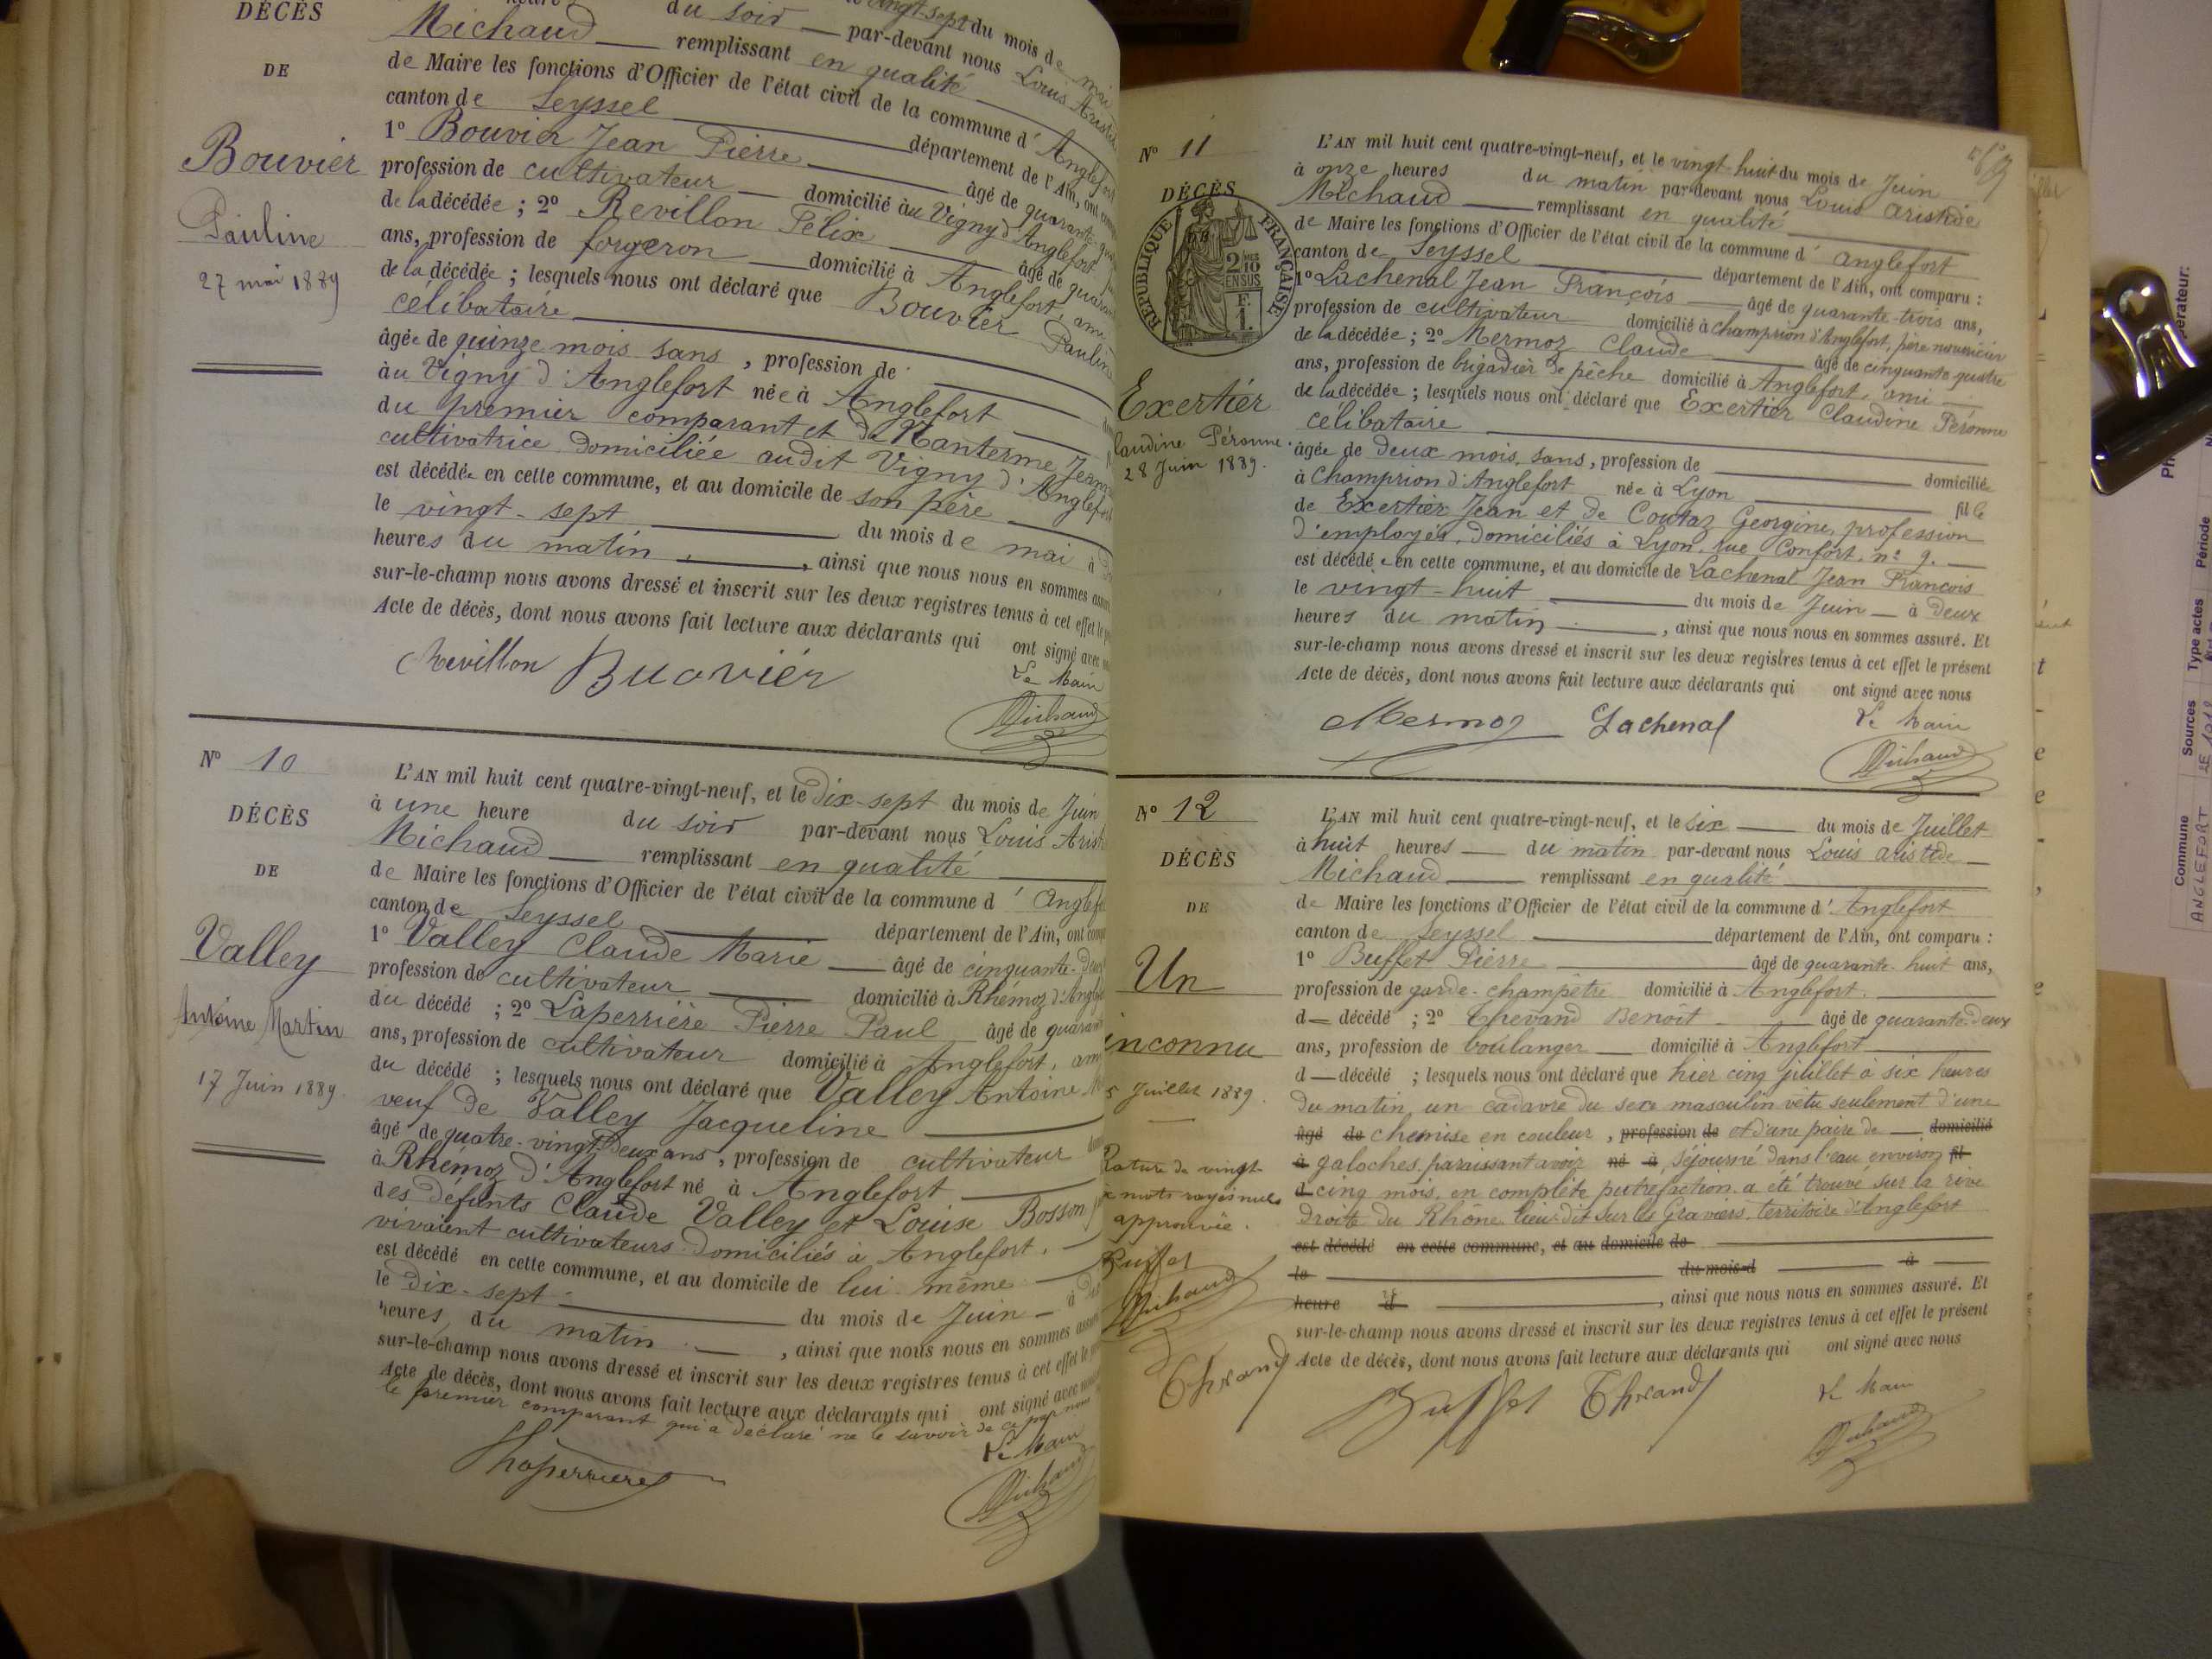 DÉCÈS
DE
Bouvier
Pauline
27 mai 1889
du soir par-devant nous Louis
Michaud remplissant en qualité
de Maire les fonctions d'Officier de l'état civil de la commune d'
canton de Seyssel département de l'Ain, ont
1° Bouvier Jean Pierre âgé de quarante
profession de cultivateur domicilié au Vigny d'Anglefort
de la décédée ; 2° Revillon Félix âgé de
ans, profession de forgeron domicilié à Anglefort, ami
de la décédée ; lesquels nous ont déclaré que Bouvier
célibataire
âgée de quinze mois sans , profession de
au Vigny d'Anglefort née à Anglefort
du premier comparant et de Nanterme
cultivatrice domiciliée audit Vigny d'
est décédée en cette commune, et au domicile de son père
le vingt-sept du mois de mai à
heures du matin , ainsi que nous nous en sommes
sur-le-champ nous avons dressé et inscrit sur les deux registres tenus à cet effet le
Acte de décès, dont nous avons fait lecture aux déclarants qui ont signé avec
Revillon Buovier Le Maire
Michaud
N° 10
DÉCÈS
DE
Valley
Antoine Martin
17 Juin 1889
L'AN mil huit cent quatre-vingt-neuf, et le dix-sept du mois de Juin
à une heure du soir par-devant nous Louis
Michaud remplissant en qualité
de Maire les fonctions d'Officier de l'état civil de la commune d'
canton de Seyssel département de l'Ain, ont
1° Valley Claude Marie âgé de cinquante-deux
profession de cultivateur domicilié à Rhémoz
du décédé ; 2° Laperrière Pierre Paul âgé de
ans, profession de cultivateur domicilié à Anglefort, ami
du décédé ; lesquels nous ont déclaré que Valley Antoine
veuf de Valley Jacqueline
âgé de quatre-vingt-deux ans , profession de cultivateur
à Rhémoz d'Anglefort né à Anglefort
des défunts Claude Valley et Louise Bosson
vivaient cultivateurs domiciliés à Anglefort.
est décédé en cette commune, et au domicile de lui même
le dix-sept du mois de Juin à
heures du matin , ainsi que nous nous en sommes
sur-le-champ nous avons dressé et inscrit sur les deux registres tenus à cet effet le
Acte de décès, dont nous avons fait lecture aux déclarants qui ont signé avec
le premier comparant qui a déclaré ne le savoir de ce par nous
Le Maire
Michaud
N° 11
DÉCÈS
RÉPUBLIQUE FRANÇAISE
2/10 EN SUS
Exertier
Claudine Péronne
28 Juin 1889.
L'AN mil huit cent quatre-vingt-neuf, et le vingt-huit du mois de Juin
à onze heures du matin par-devant nous Louis Aristide
Michaud remplissant en qualité
de Maire les fonctions d'Officier de l'état civil de la commune d'Anglefort
canton de Seyssel département de l'Ain, ont comparu :
1° Lachenal Jean François âgé de quarante-trois ans,
profession de cultivateur domicilié à Champrion d'Anglefort, père nourricier
de la décédée ; 2° Mermoz Claude âgé de cinquante quatre
ans, profession de brigadier de pêche domicilié à Anglefort, ami
de la décédée ; lesquels nous ont déclaré que Exertier Claudine Péronne
célibataire
âgée de deux mois, sans , profession de domiciliée
à Champrion d'Anglefort née à Lyon fille
de Exertier Jean et de Coutaz Georgine, profession
d'employés, domiciliés à Lyon, rue Confort, n° 9.
est décédée en cette commune, et au domicile de Lachenal Jean François
le vingt-huit du mois de Juin à deux
heures du matin , ainsi que nous nous en sommes assuré. Et
sur-le-champ nous avons dressé et inscrit sur les deux registres tenus à cet effet le présent
Acte de décès, dont nous avons fait lecture aux déclarants qui ont signé avec nous
Mermoz Lachenal Le Maire
Michaud
N° 12
DÉCÈS
DE
Un
inconnu
5 Juillet 1889.
Rature de vingt
mots rayés nuls
approuvée.
Buffet
Michaud
L'AN mil huit cent quatre-vingt-neuf, et le six du mois de Juillet
à huit heures du matin par-devant nous Louis Aristide
Michaud remplissant en qualité
de Maire les fonctions d'Officier de l'état civil de la commune d'Anglefort
canton de Seyssel département de l'Ain, ont comparu :
1° Buffet Pierre âgé de quarante-huit ans,
profession de garde-champêtre domicilié à Anglefort.
d décédé ; 2° Benoit âgé de quarante-deux
ans, profession de boulanger domicilié à Anglefort
d décédé ; lesquels nous ont déclaré que hier cinq juillet à six heures
du matin, un cadavre du sexe masculin vêtu seulement d'une
âgé de chemise en couleur, profession de et d'une paire de domicilié
à galoches paraissant avoir né à séjourné dans l'eau environ fil
d cinq mois, en complète putréfaction a été trouvé sur la rive
droite du Rhône, lieu dit sur les Graviers, territoire d'Anglefort
est décédé en cette commune, et au domicile de
le du mois d à
heure d , ainsi que nous nous en sommes assuré. Et
sur-le-champ nous avons dressé et inscrit sur les deux registres tenus à cet effet le présent
Acte de décès, dont nous avons fait lecture aux déclarants qui ont signé avec nous
Buffet Le Maire
Michaud
Commune
ANGLEFORT
Sources
Type actes
Période